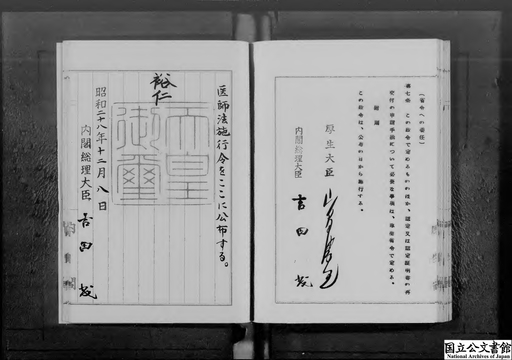 (省令への委任)
第七条 この政令で定めるもののほか、
手続について必要な事項は、厚生省令で定める。
附則
この政令は、公布の日から施行する。
厚生大臣
内閣総理大臣 吉田茂
医師法施行令をここに公布する。
裕仁
天皇御璽
昭和二十八年十二月八日
内閣総理大臣 吉田茂
国立公文書館
National Archives of Japan